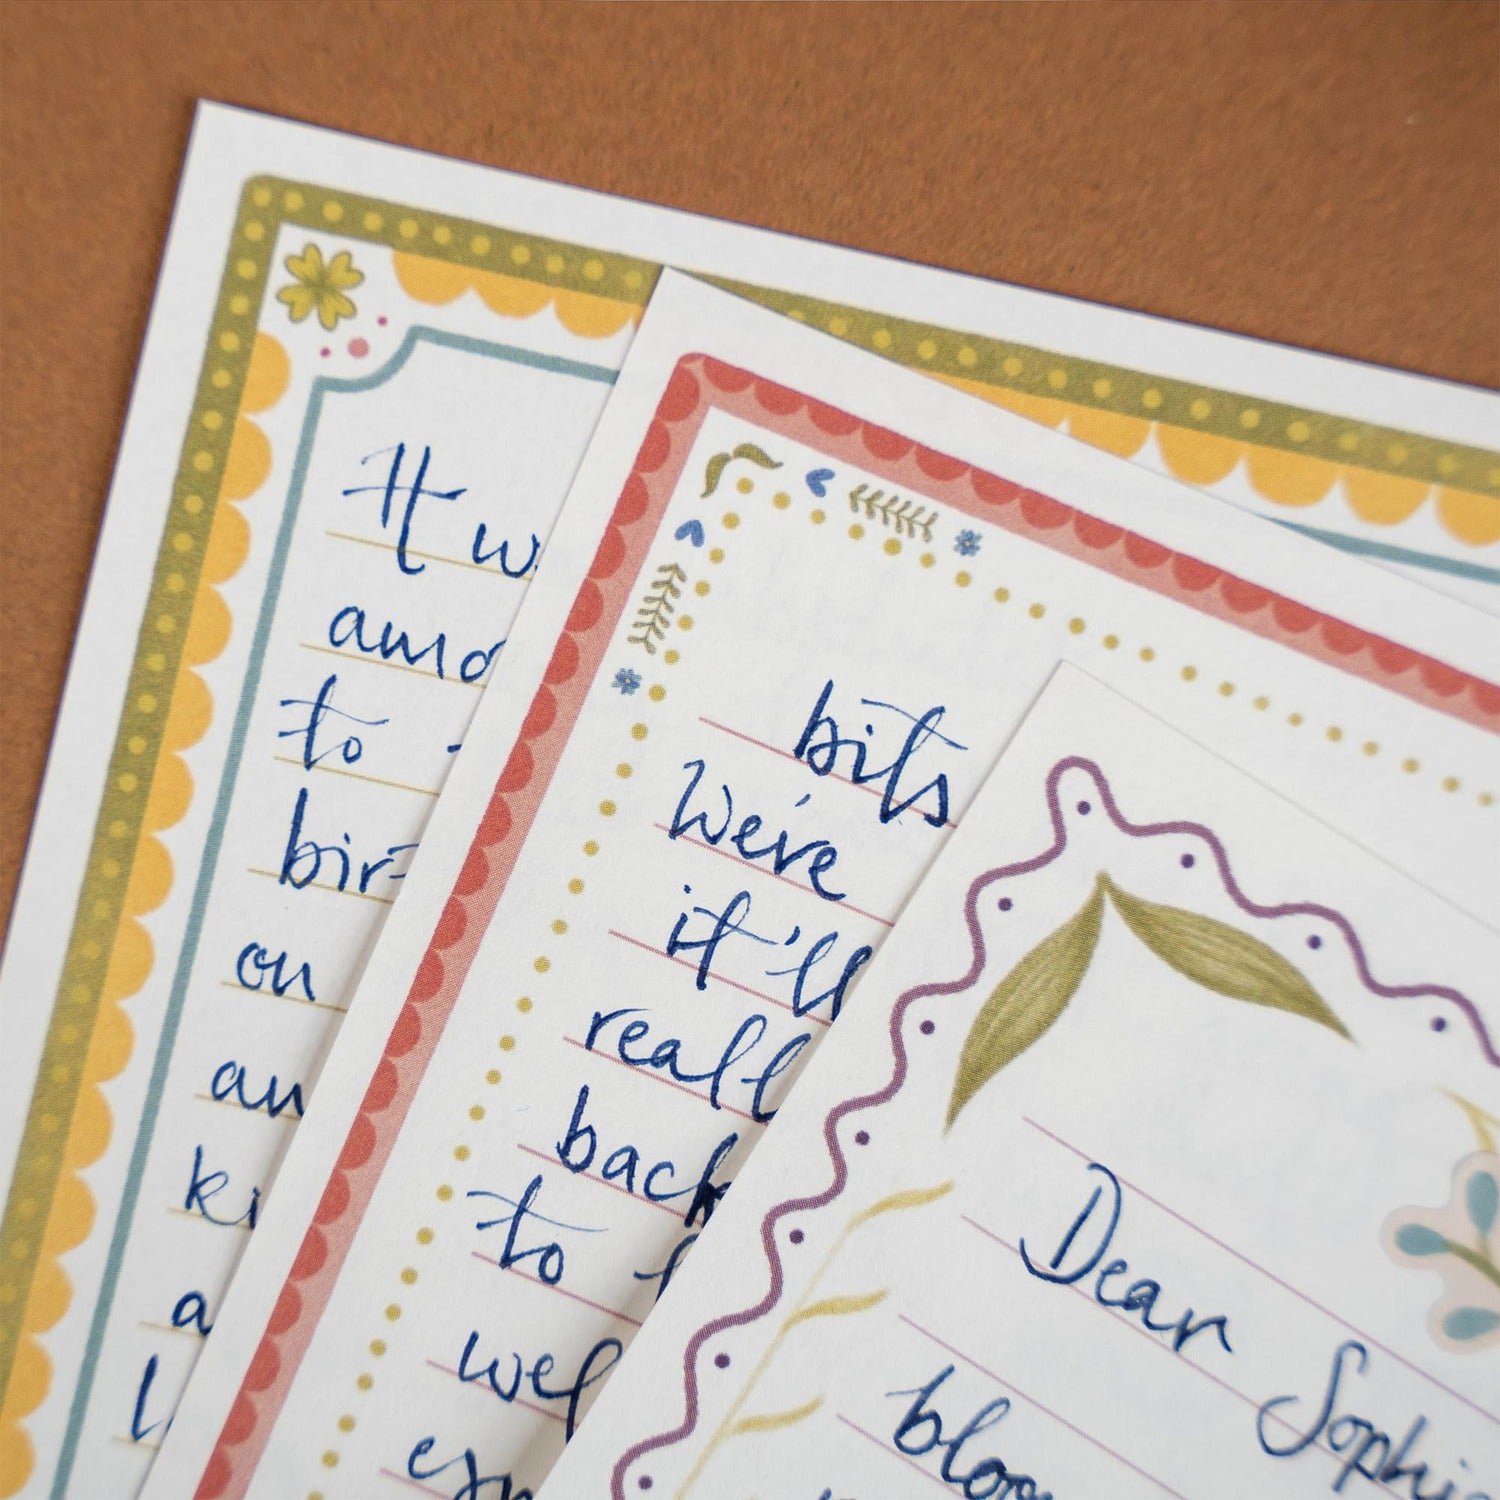 It w
amo
to
bir
on
an
ki
a
bits
We're
it'll
reall
back
to
wel
Dear Sophi
bloo